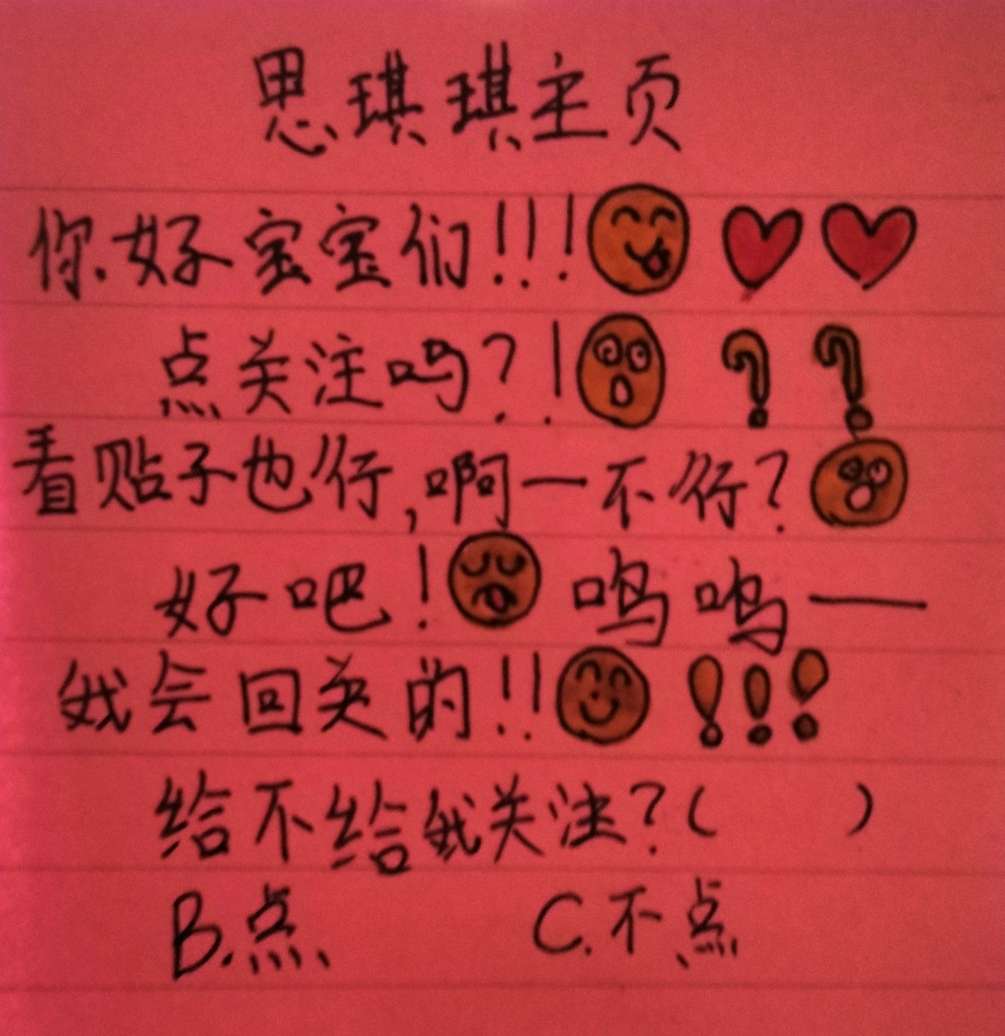 思琪琪主页
你好宝宝们!!!
点关注吗?!??
看贴子也行,啊一不行?
好吧!呜呜一
我会回关的!!!!!
给不给我关注?( )
B.点 C.不点